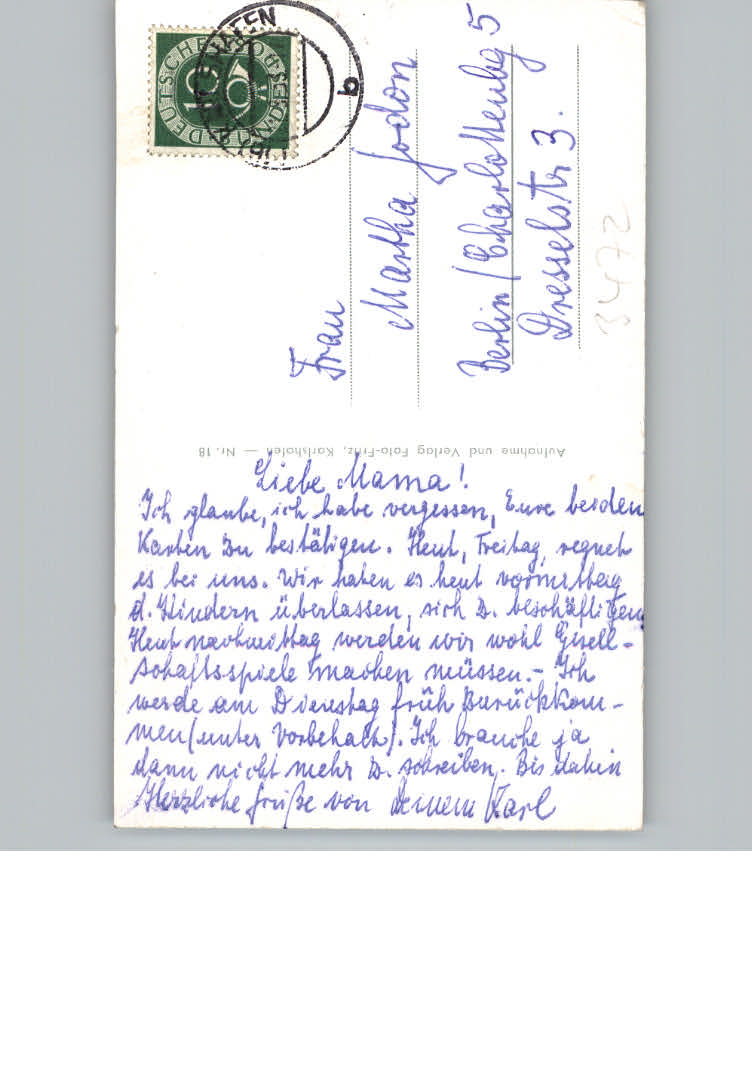 DEUTSCHE BUNDESPOST
10
b
Frau
Martha Jodon
Berlin/Charlottenbg 5
Dresselstr 3.
3472
Aufnahme und Verlag Foto-Fritz, Karlshafen — Nr. 18
Liebe Mama!
Ich glaube, ich habe vergessen, Eure beiden
Karten zu bestätigen. Heut, Freitag, regnet
es bei uns. Wir haben es heut vormittag
d. Kindern überlassen, sich z. beschäftigen.
Heut nachmittag werden wir wohl Gesell-
schaftsspiele machen müssen. - Ich
werde am Dienstag früh zurückkom-
men (unter Vorbehalt). Ich brauche ja
dann nicht mehr z. schreiben. Bis dahin
Herzliche Grüße von Deinem Karl